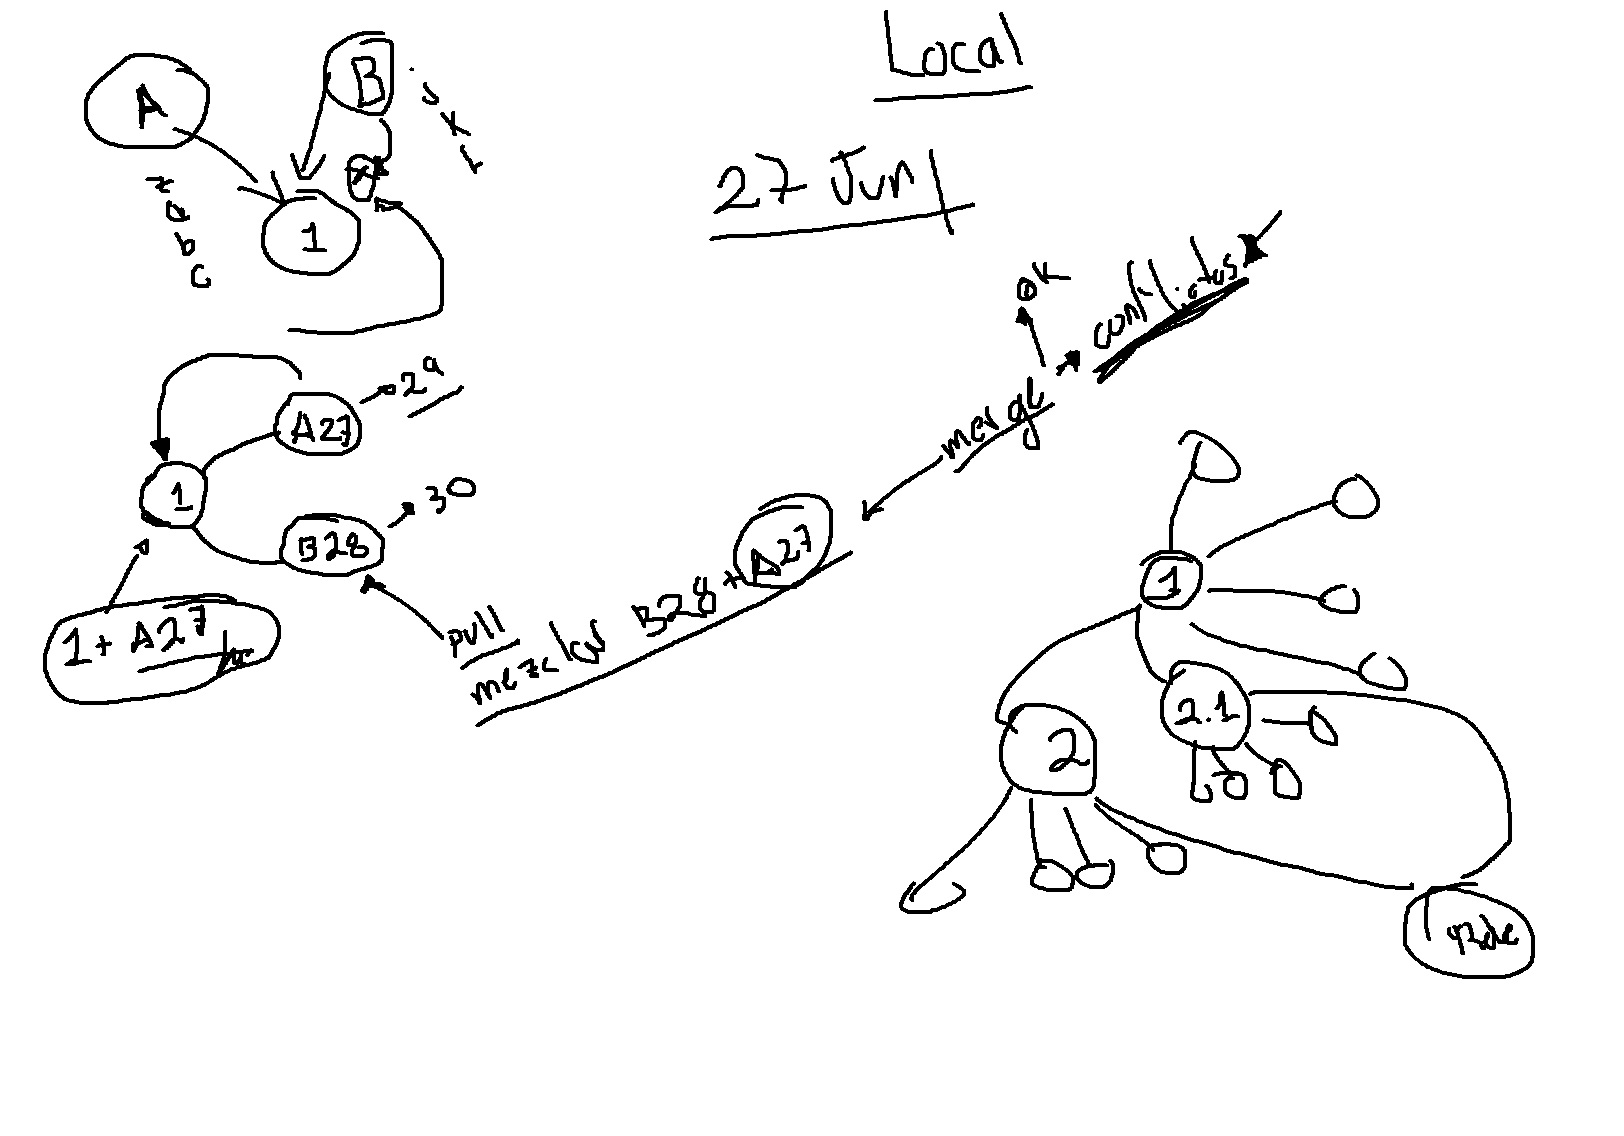 Local
27 Jun
A
B
J
K
L
X
z
a
b
c
1
A27
2a
1
B28
30
1 + A27
pull
mezclar B28 + A27
merge
OK
conflictos
1
2.1
2